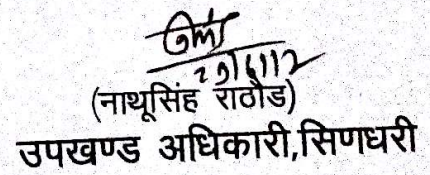 (नाथूसिंह राठौड)
उपखण्ड अधिकारी,सिणधरी